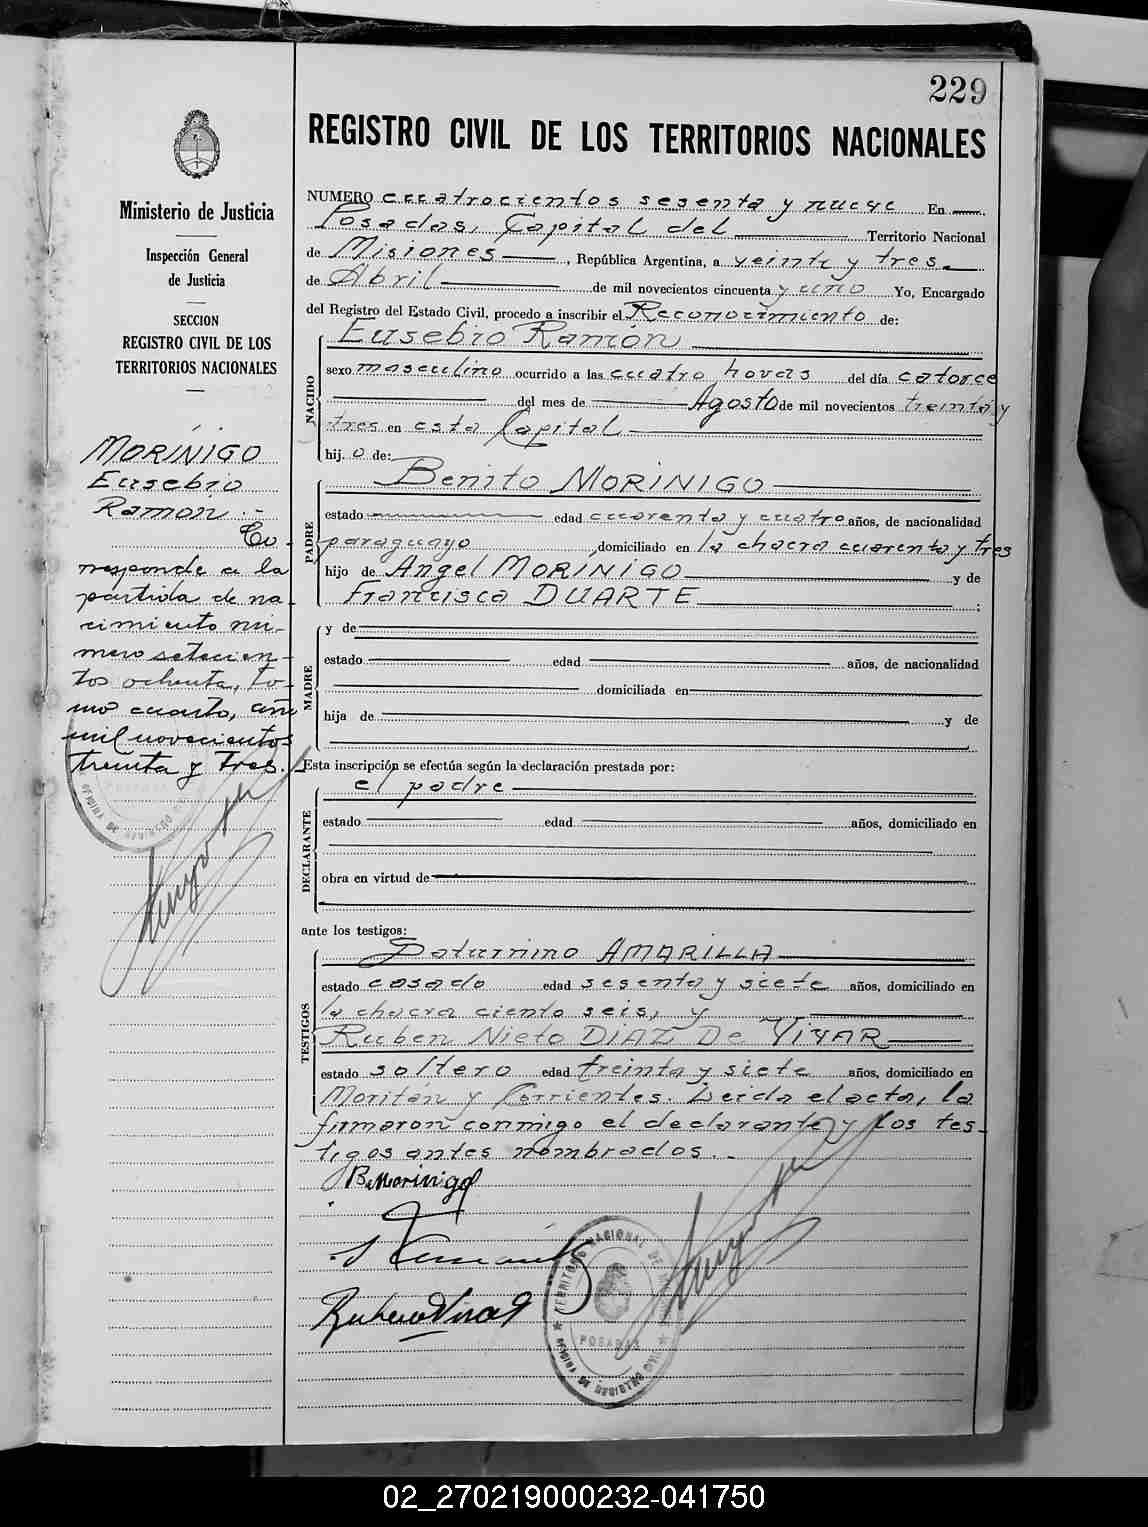 229
REGISTRO CIVIL DE LOS TERRITORIOS NACIONALES
Ministerio de Justicia
Inspección General
de Justicia
SECCION
REGISTRO CIVIL DE LOS
TERRITORIOS NACIONALES
MORÍNIGO
Eusebio
Ramón.-
Co-
rresponde a la
partida de na-
cimiento nú-
mero setecien-
tos ochenta, to-
mo cuarto, año
mil novecientos
treinta y tres.
NUMERO cuatrocientos sesenta y nueve En
Posadas, Capital del Territorio Nacional
de Misiones, República Argentina, a veinte y tres
de Abril de mil novecientos cincuenta y uno Yo, Encargado
del Registro del Estado Civil, procedo a inscribir el Reconocimiento de:
NACIDO
Eusebio Ramón
sexo masculino ocurrido a las cuatro horas del día catorce
del mes de Agosto de mil novecientos treinta y
tres en esta Capital
hij.o de:
PADRE
Benito MORINIGO
estado edad cuarenta y cuatro años, de nacionalidad
paraguayo, domiciliado en la chacra cuarenta y tres
hijo de Angel MORÍNIGO y de
Francisca DUARTE;
MADRE
y de
estado edad años, de nacionalidad
domiciliada en
hija de y de
Esta inscripción se efectúa según la declaración prestada por:
DECLARANTE
el padre
estado edad años, domiciliado en
obra en virtud de
ante los testigos:
TESTIGOS
Saturnino AMARILLA
estado casado edad sesenta y siete años, domiciliado en
la chacra ciento seis, y
Ruben Nieto DIAZ De VIVAR
estado soltero edad treinta y siete años, domiciliado en
Moritán y Corrientes. Leida el acta, la
firmaron conmigo el declarante y los tes-
tigos antes nombrados.-
B. Morinigo
TERRITORIO NACIONAL DE MISIONES
POSADAS
OFICINA DE REGISTRO CIVIL
02_270219000232-041750